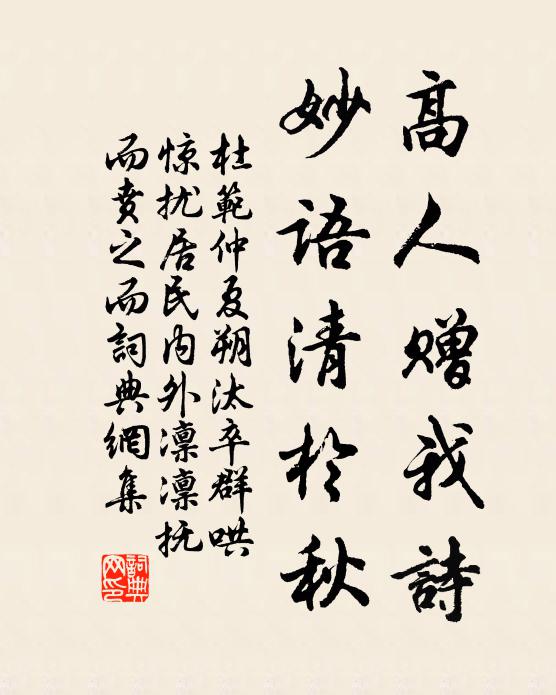 高人赠我詩
妙語清於秋
杜範仲夏朔汰卒群哄
惊扰居民内外凛凛抚
而賁之而詞典網集
詞典
网印